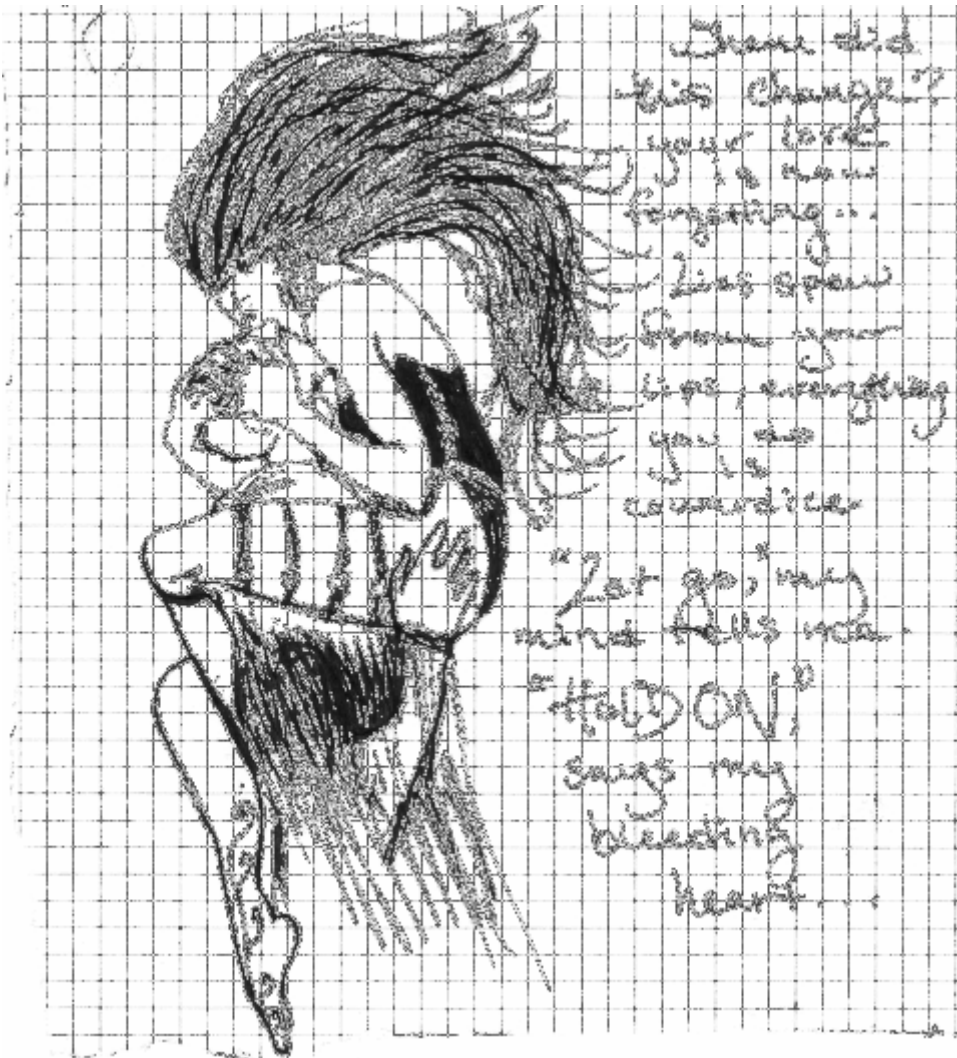 did
this change?
your love
is now
forgetting...
Lies spew
from your
lips, everything
you do
is
cowardice.
"Let go," my
mind tells me.
"HOLD ON,"
says my
bleeding
heart...